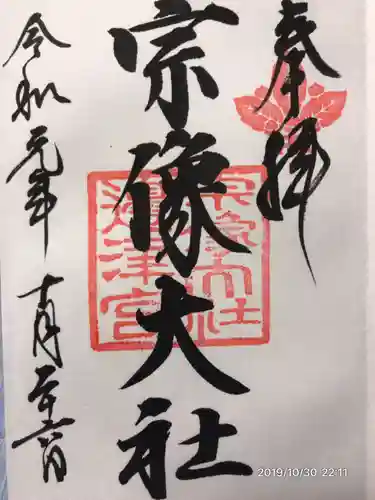 奉拝
宗像大社
宗像大社
邊津宮
令和元年
十月二十六日
2019/10/30 22:11